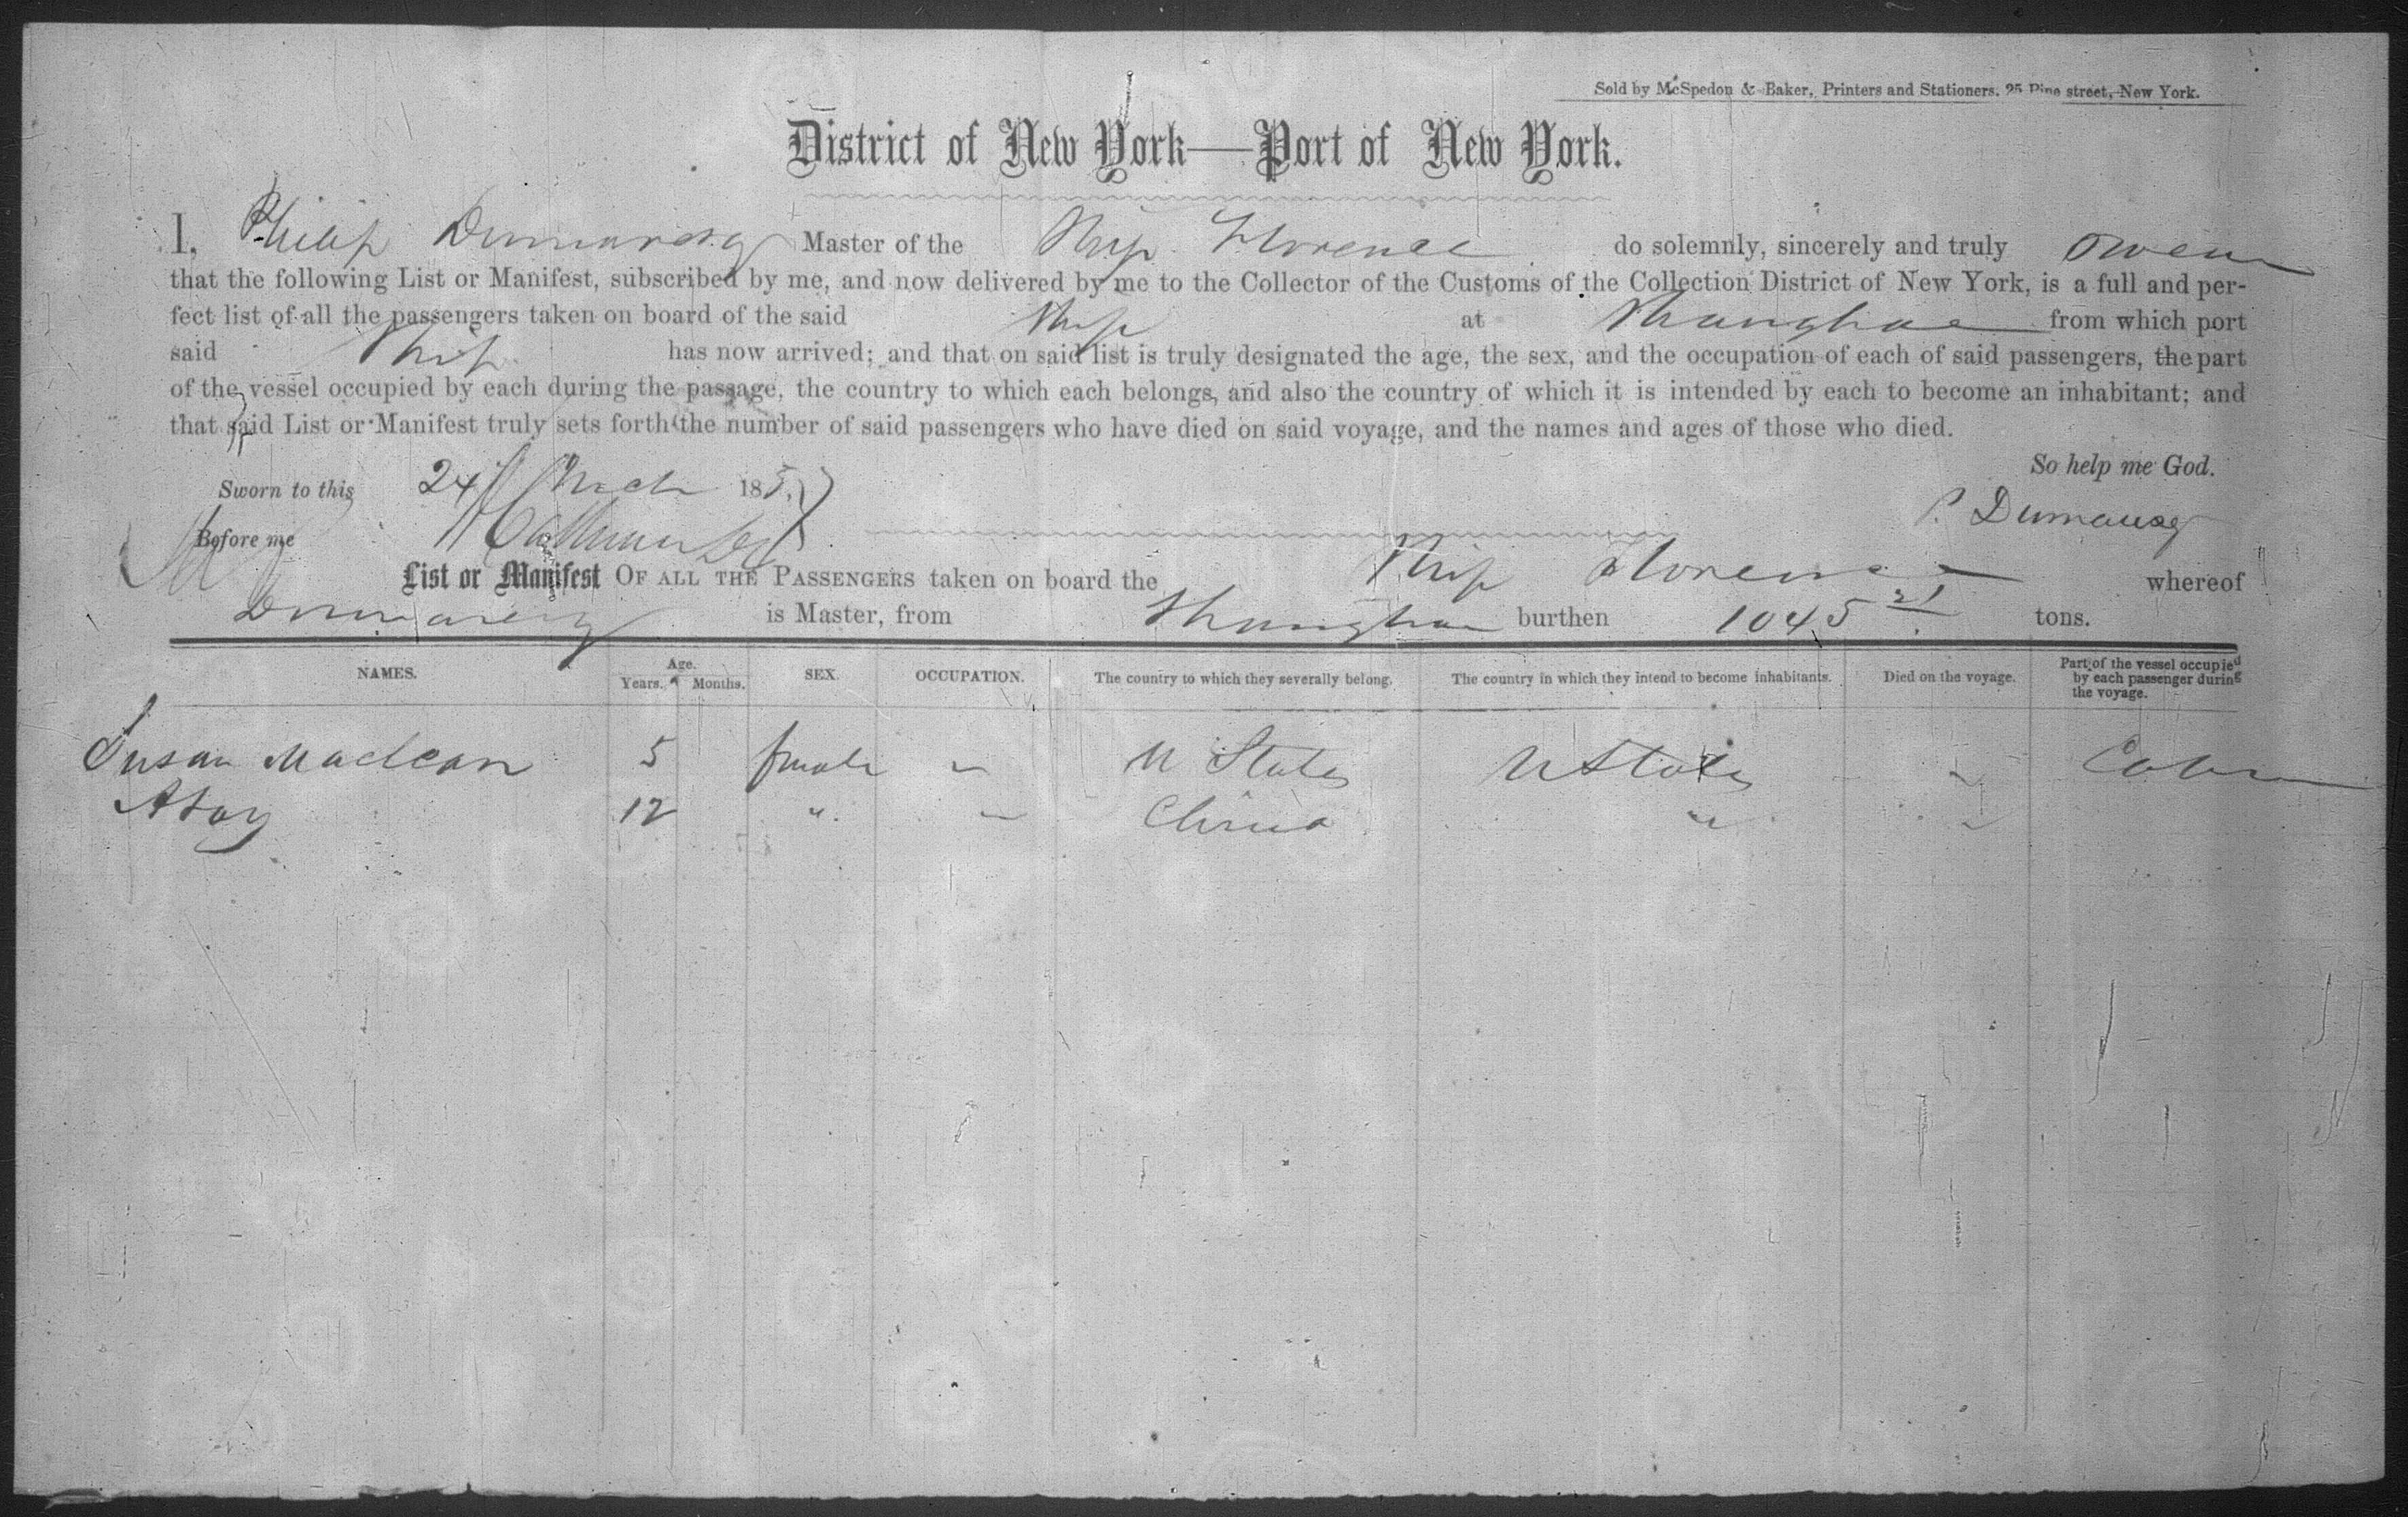 Sold by McSpedon & Baker, Printers and Stationers, 25 Pine street, New York.
District of New York—Port of New York.
I, Philip Dumaresq Master of the Ship Florence do solemnly, sincerely and truly swear
that the following List or Manifest, subscribed by me, and now delivered by me to the Collector of the Customs of the Collection District of New York, is a full and per-
fect list of all the passengers taken on board of the said Ship at Shanghae from which port
said Ship has now arrived; and that on said list is truly designated the age, the sex, and the occupation of each of said passengers, the part
of the vessel occupied by each during the passage, the country to which each belongs, and also the country of which it is intended by each to become an inhabitant; and
that said List or Manifest truly sets forth the number of said passengers who have died on said voyage, and the names and ages of those who died.
So help me God.
Sworn to this 24 March 185
P. Dumaresq
Before me
List or Manifest OF ALL THE PASSENGERS taken on board the Ship Florence whereof
Dumaresq is Master, from Shanghae burthen 1045 21 tons.
NAMES. Age. Years. Months. SEX. OCCUPATION. The country to which they severally belong. The country in which they intend to become inhabitants. Died on the voyage. Part of the vessel occupied by each passenger during the voyage.
Susan Maclean 5 female " U States U States " Cabin
Atoy 12 " " China " "